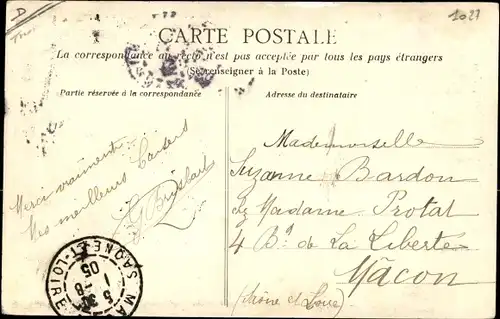 D
1027
CARTE POSTALE
La correspondance au recto n'est pas acceptée par tous les pays étrangers
(Se renseigner à la Poste)
Partie réservée à la correspondance
Adresse du destinataire
Merci vraiment
Mes meilleurs baisers
Mademoiselle
Suzanne Bardon
chez Madame Protat
4 Bd de La Liberté
Mâcon
(Saône et Loire)
SAONE-ET-LOIRE